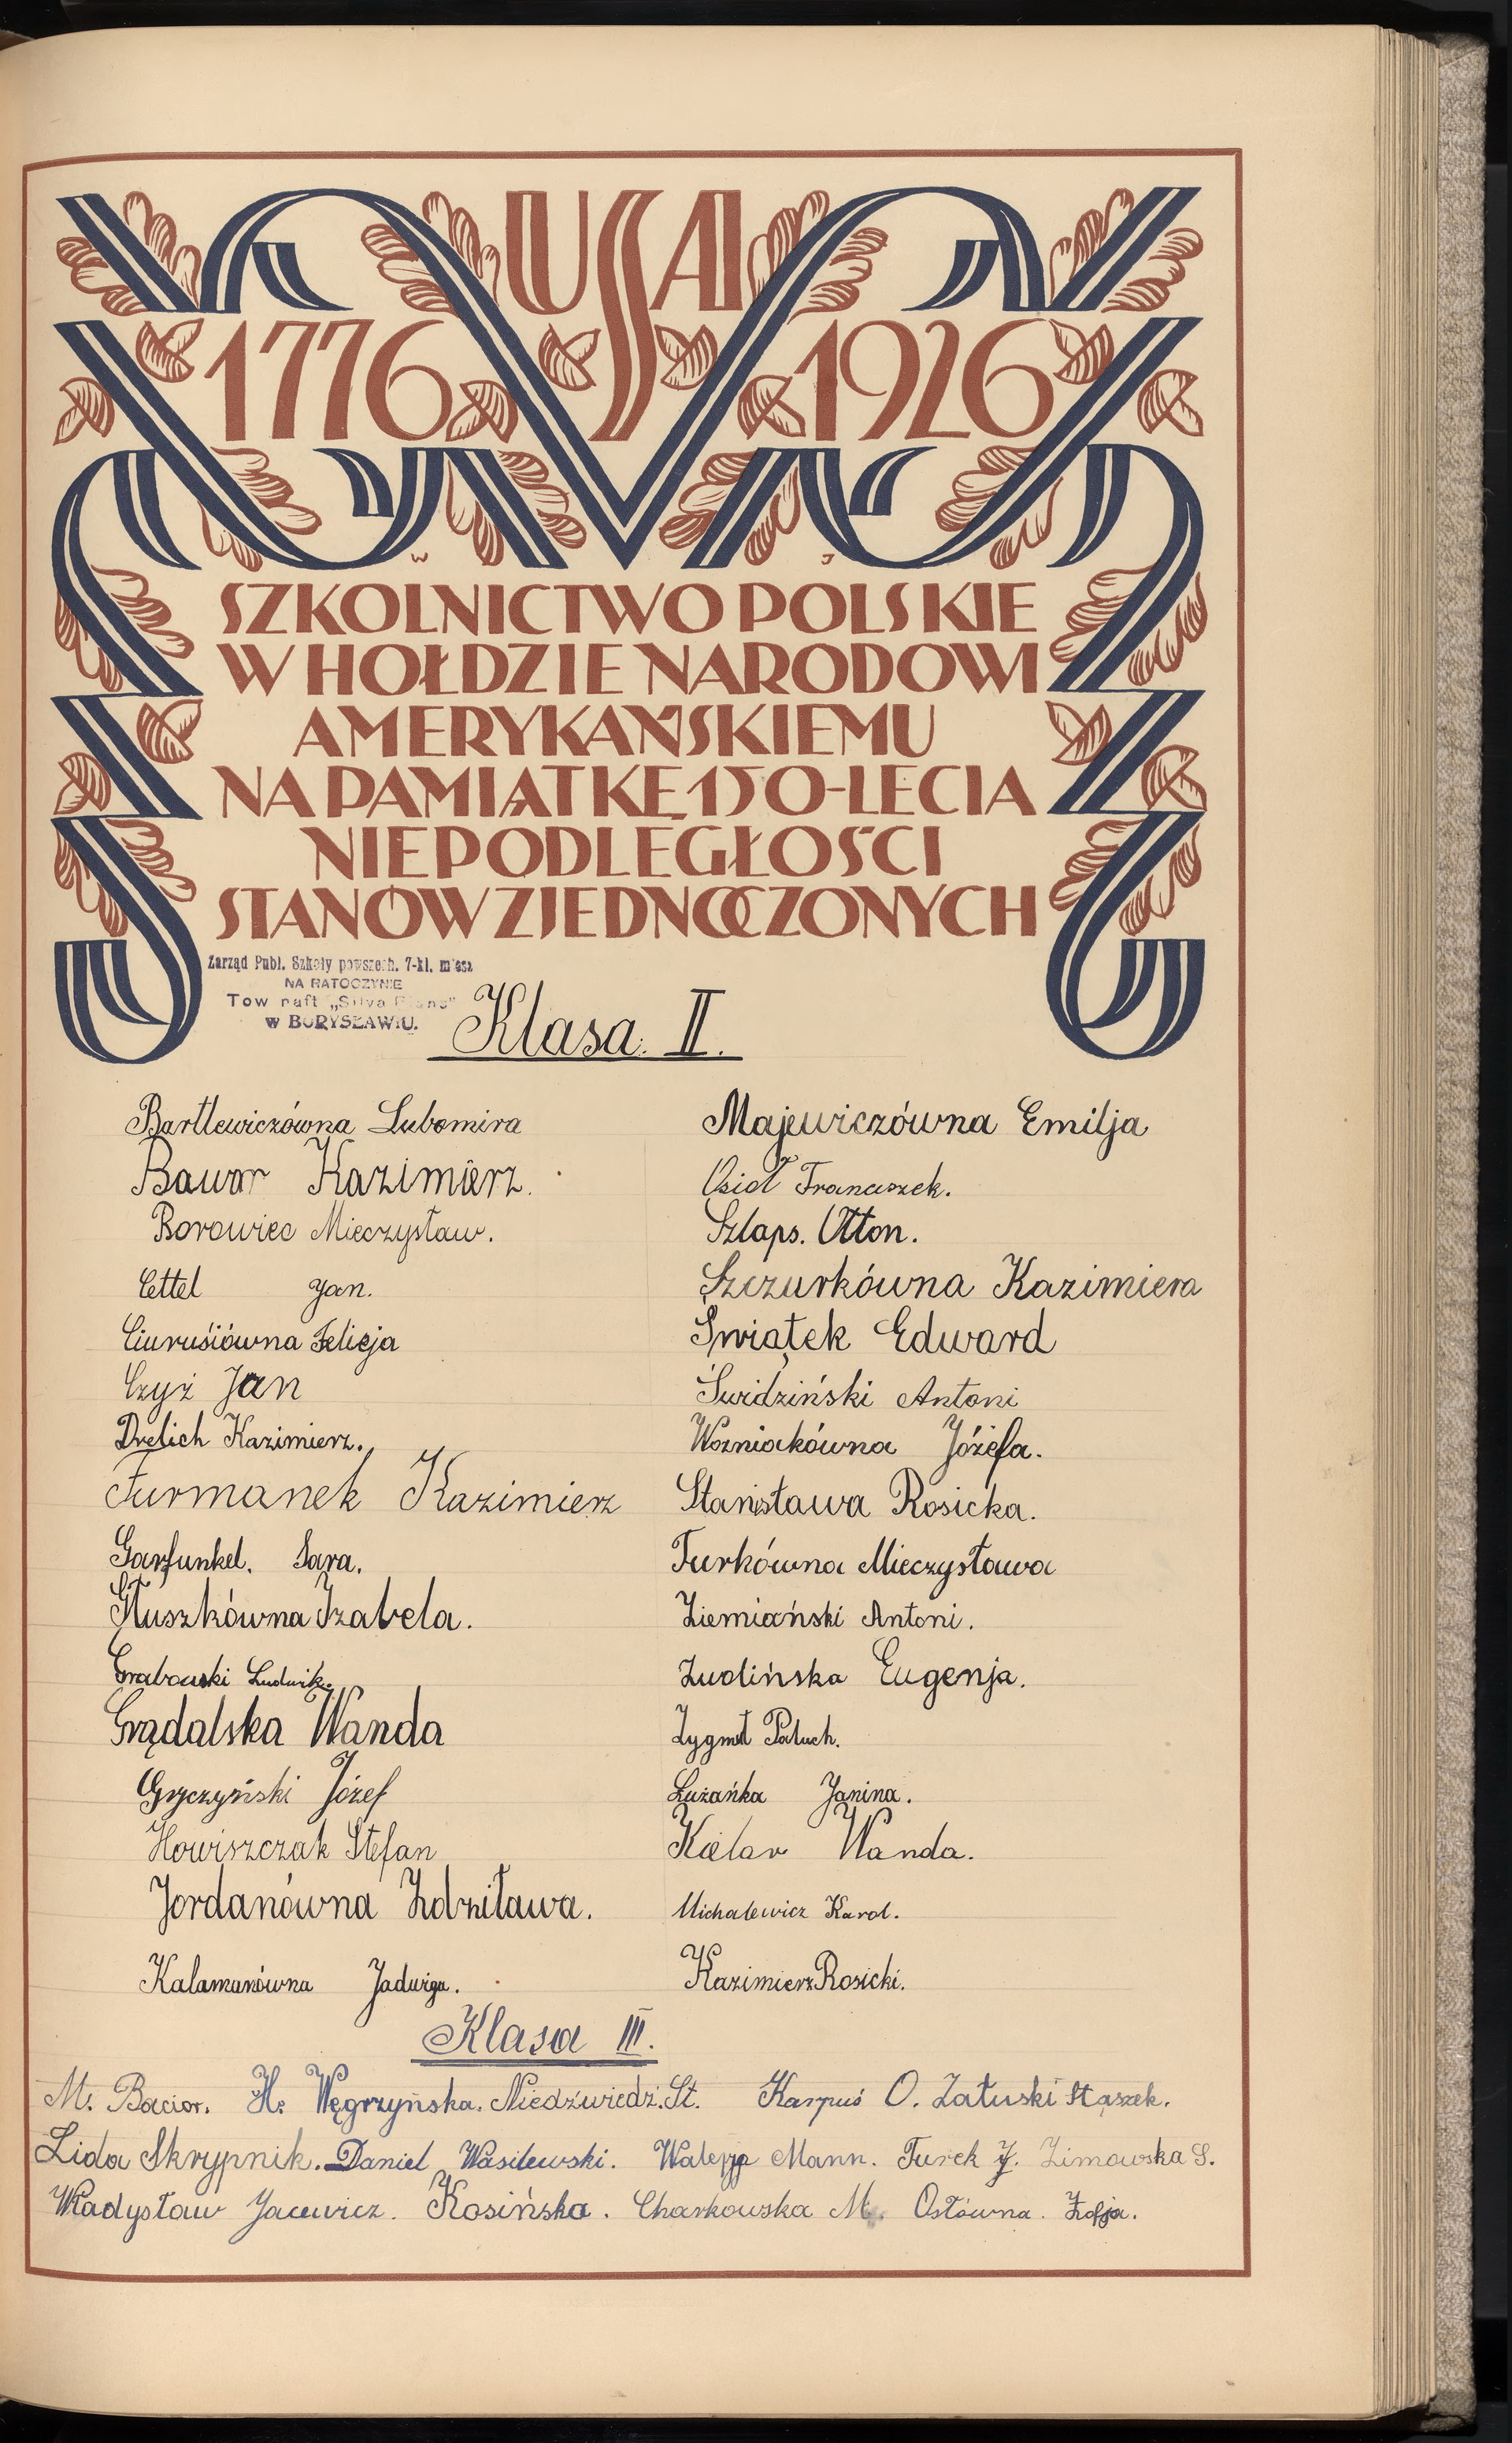 USA
1776 1926
W J
SZKOLNICTWO POLSKIE
W HOŁDZIE NARODOWI
AMERYKAŃSKIEMU
NA PAMIĄTKĘ 150-LECIA
NIEPODLEGŁOŚCI
STANÓW ZJEDNOCZONYCH
Zarząd Publ. Szkoły powszech. 7-kl. miesz
NA RATOCZYNIE
Tow naft „Silva Plana"
w BORYSŁAWIU.
Klasa. II.
Bartlewiczówna Lubomira
Bawor Kazimierz.
Borowiec Mieczysław.
Cettel Jan.
Ciuruśiówna Felicja
Czyż Jan
Drelich Kazimierz.
Furmanek Kazimierz
Garfunkel. Sara.
Głuszkówna Izabela.
Grabowski Ludwik.
Grądalska Wanda
Gryczyński Józef
Howiszczak Stefan
Jordanówna Zdziława.
Kalamunówna Jadwiga.
Majewiczówna Emilja
Osioł Franciszek.
Szlaps. Otton.
Szczurkówna Kazimiera
Świątek Edward
Świdziński Antoni
Wozniakówna Józefa.
Stanisława Rosicka.
Turkówna Mieczysława
Ziemiański Antoni.
Żudińska Eugenja.
Zygmut Paluch.
Łużańka Janina.
Kielar Wanda.
Michalewicz Karol.
Kazimierz Rosicki.
Klasa III.
M. Bacior. H. Węgrzyńska. Niedźwiedź. St. Karpuś O. Załuski Staszek.
Lida Skrypnik. Daniel Wasilewski. Walerja Mann. Turek J. Zimowska S.
Władysław Jacewicz. Kosińska. Charkowska M. Osłówna. Zofja.